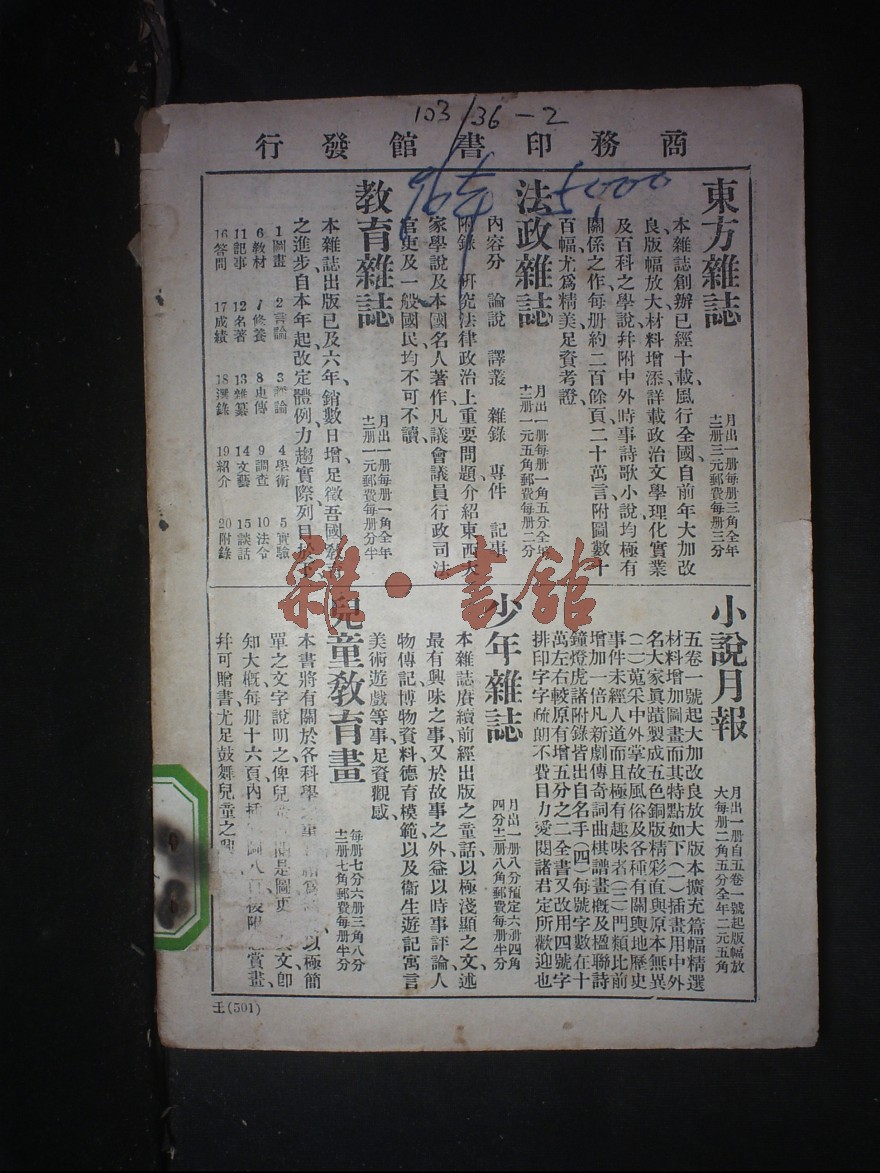 103/36-2
商務印書館發行
5000
東方雜誌
月出一册每册三角全年
十二册三元郵費每册三分
本雜誌創辦已經十載風行全國自前年大加改
良版幅放大材料增添詳載政治文學理化實業
及百科之學說幷附中外時事詩歌小說均極有
關係之作每册約二百餘頁二十萬言附圖數十
百幅尤爲精美足資考證
法政雜誌
月出一册每册一角五分全年
十二册一元五角郵費每册二分
內容分 論說 譯叢 雜錄 專件 記事
附錄 研究法律政治上重要問題介紹東西大
家學說及本國名人著作凡議會議員行政司法
官吏及一般國民均不可不讀
教育雜誌
月出一册每册一角全年
十二册一元郵費每册分半
本雜誌出版已及六年銷數日增足徵吾國教育
之進步自本年起改定體例力趨實際列目於下
1圖畫 2言論 3 論 4學術 5實驗
6教材 7修養 8史傳 9調查 10法令
11記事 12名著 13雜纂 14文藝 15談話
16答問 17成績 18選錄 19紹介 20附錄
小說月報
月出一册自五卷一號起版幅放
大每册二角五分全年二元五角
五卷一號起大加改良放大版本擴充篇幅精選
材料增加圖畫而其特點如下(一)插畫用中外
名大家眞蹟製成五色銅版精彩直與原本無異
(二)蒐采中外掌故風俗及各種有關輿地歷史
事件未經人道而且極有趣味者(三)門類比前
增加一倍凡新劇傳奇詞曲棋譜畫槪及楹聯詩
鐘燈虎諸附錄皆出自名手(四)每號字數在十
萬左右較原有增五分之二全書又改用四號字
排印字字疏朗不費目力愛閱諸君定所歡迎也
少年雜誌
月出一册八分預定六册四角
四分十二册八角郵費每册半分
本雜誌賡續前經出版之童話以極淺顯之文述
最有興味之事又於故事之外益以時事評論人
物傳記博物資料德育模範以及衞生遊記寓言
美術遊戲等事足資觀感
兒童敎育畫
每册七分六册三角八分
十二册七角郵費每册半分
本書將有關於各科學之事 以極簡
單之文字說明之俾兒 閱是圖更 文卽
知大槪每册十六頁內插 後附 賞畫
幷可贈書尤足鼓舞兒童之
雜·書館
王(501)